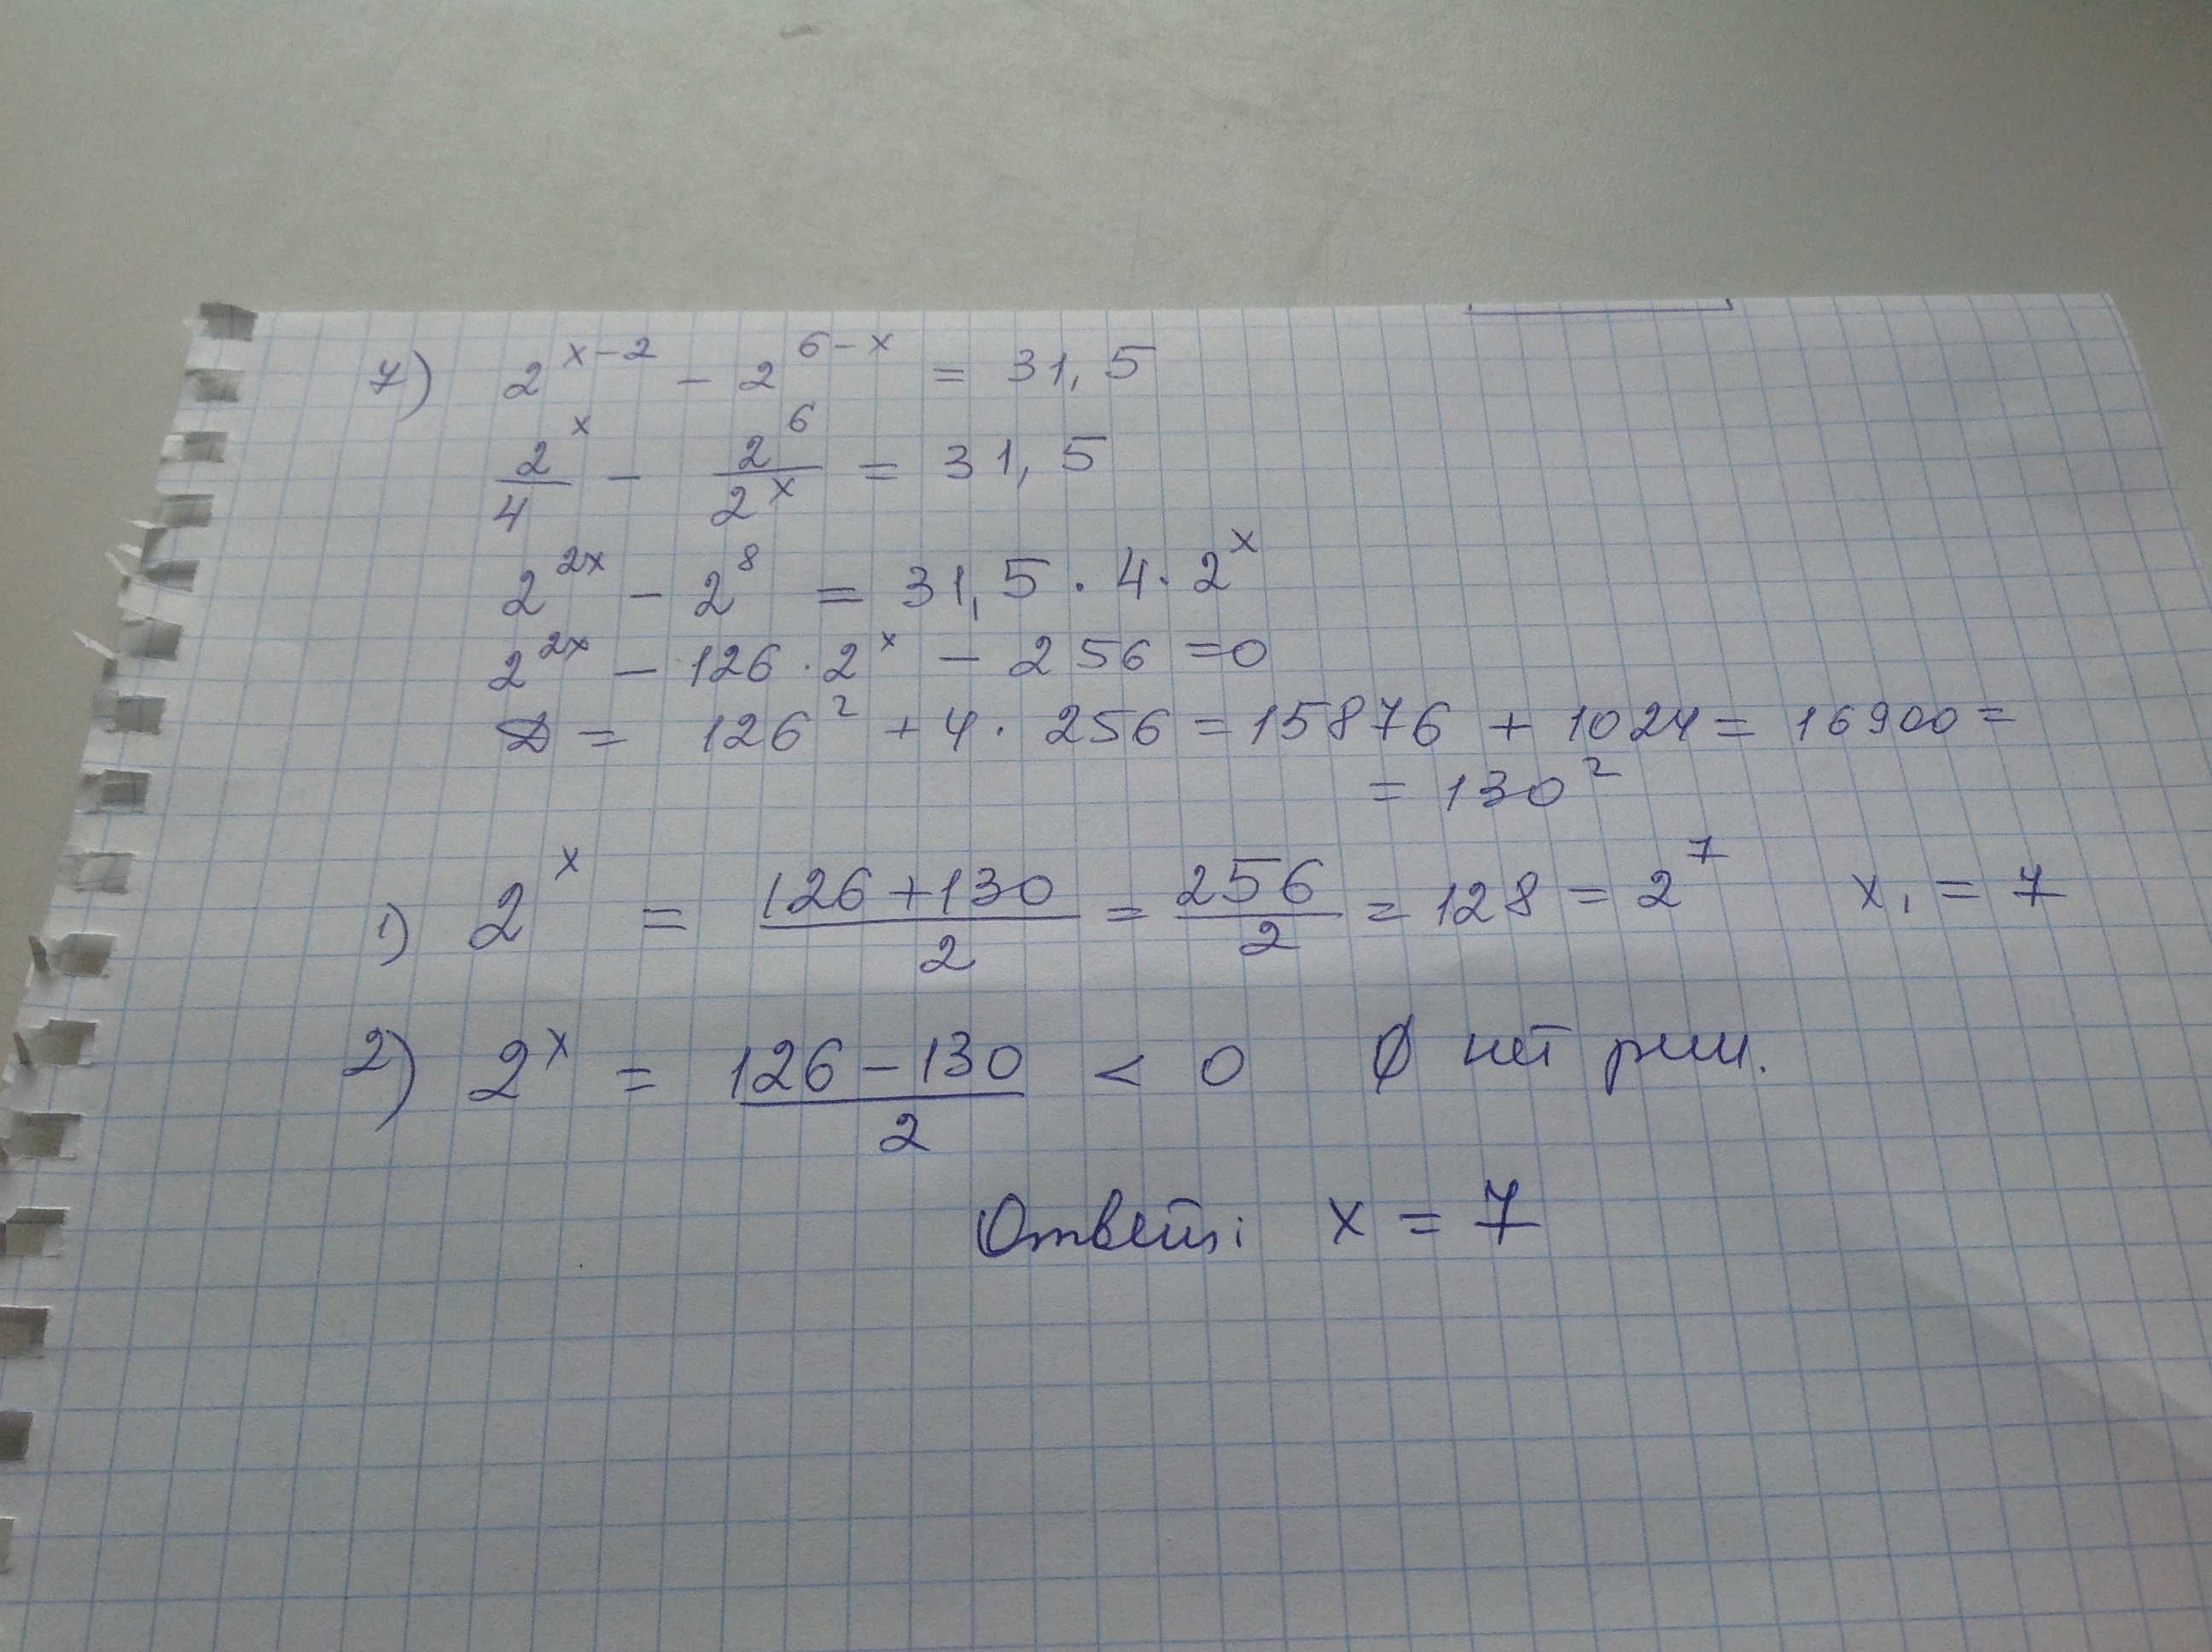 7) 2^{x-2} - 2^{6-x} = 31,5
2^x/4 - 2^6/2^x = 31,5
2^{2x} - 2^8 = 31,5 · 4 · 2^x
2^{2x} - 126 · 2^x - 256 = 0
D = 126² + 4 · 256 = 15876 + 1024 = 16900 =
= 130²
1) 2^x = (126+130)/2 = 256/2 = 128 = 2^7 x₁ = 7
2) 2^x = (126-130)/2 < 0 ∅ нет реш.
Ответ: x = 7